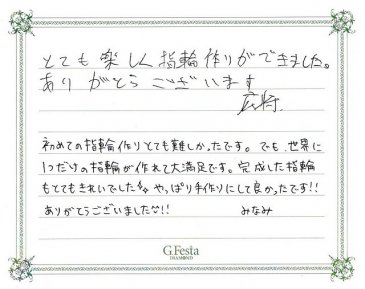 とても楽しく指輪作りができました。
ありがとうございます
広将.
初めての指輪作りとても難しかったです。でも、世界に
1つだけの指輪が作れて大満足です。完成した指輪
もとてもきれいでした。やっぱり手作りにして良かったです!!
ありがとうございました^^!!
みなみ
G.Festa
DIAMOND